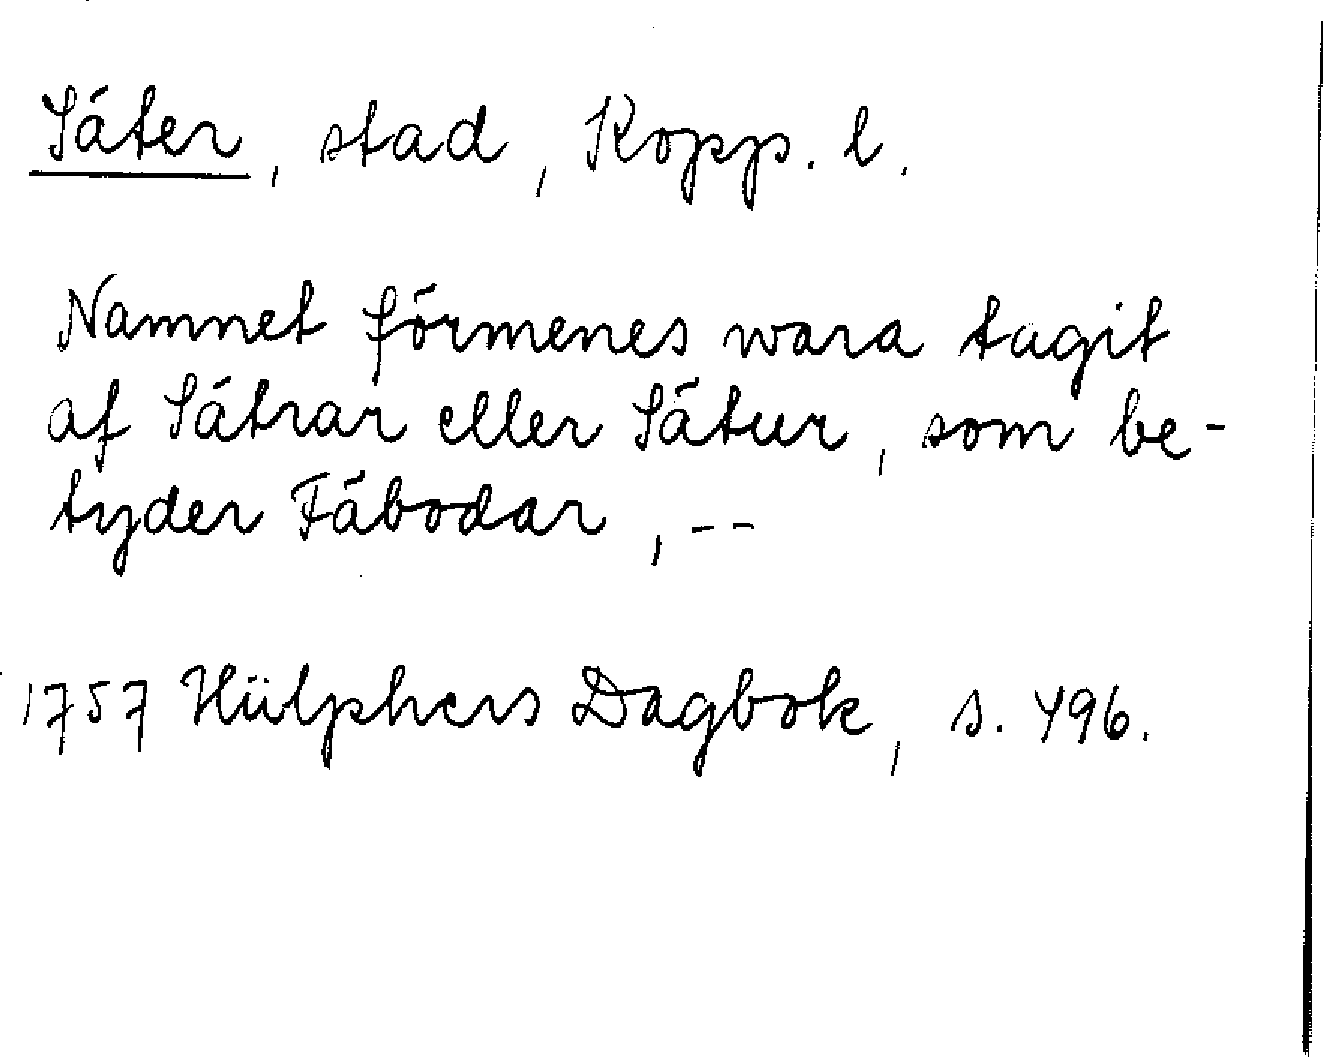 Säter, stad, Kopp. l.
Namnet förmenes wara tagit
af Sätrar eller Sätur, som be-
tyder Fäbodar, --
1757 Hülphers Dagbok, s. 496.